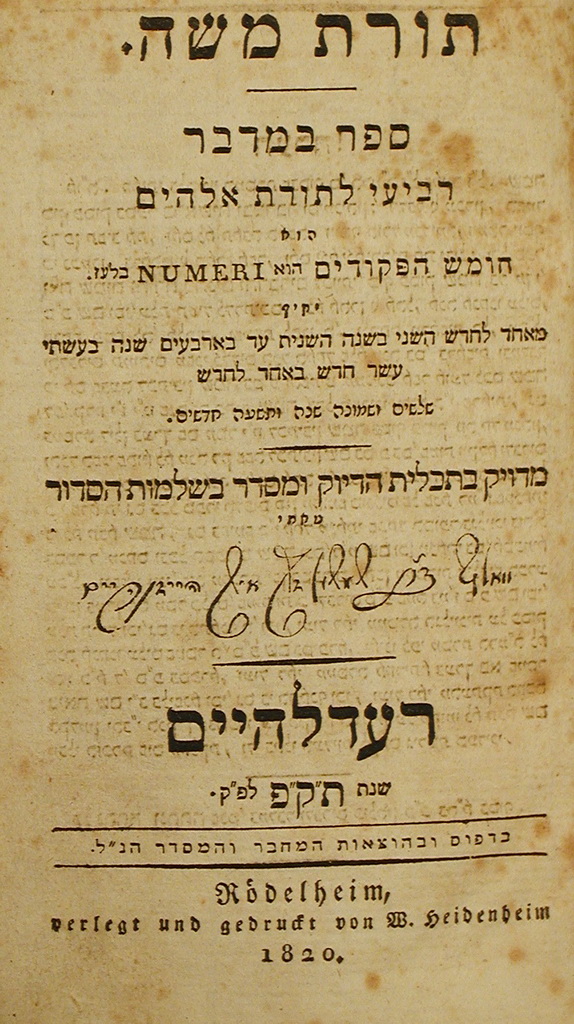 תורת משה.
ספר במדבר
רביעי לתורת אלהים
הוא
חומש הפקודים הוא NUMERI בלעז.
יקיף
מאחד לחדש השני בשנה השנית עד בארבעים שנה בעשתי
עשר חדש באחד לחדש
שלשים ושמונה שנה ותשעה חדשים.
מדויק בתכלית הדיוק ומסדר בשלמות הסדור
ממני
וואלף היידנהיים
רעדלהיים
שנת ת"ק"פ לפ"ק.
בדפוס ובהוצאות המחבר והמסדר הנ"ל.
Rödelheim,
verlegt und gedruckt von W. Heidenheim
1820.